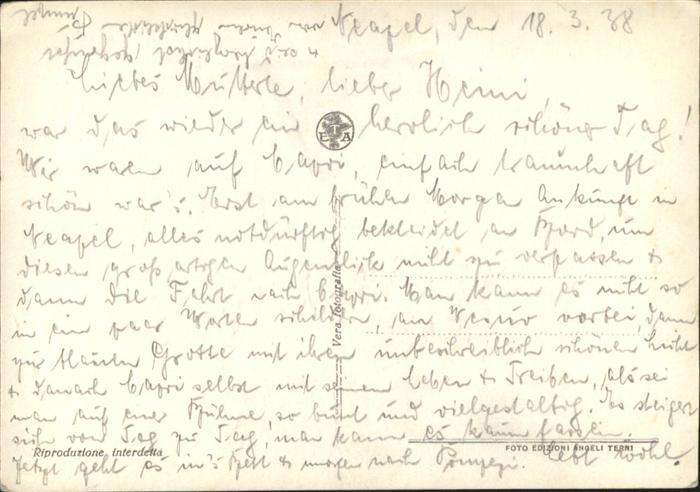 Neapel, den 18.3.38
Liebes Mutterle, lieber Heini,
war das wieder ein herrlich schöner Tag!
Wir waren auf Capri, einfach traumhaft
schön war's. Erst am frühen Morgen Ankunft in
Neapel, alles notdürftig bekleidet an Bord, um
diesen großartigen Augenblick nicht zu verpassen &
dann die Fahrt nach Capri. Man kann es nicht so
in ein paar Worten schildern, am Vesuv vorbei, dann
zur blauen Grotte mit ihrem unbeschreiblich schönen Licht
& danach Capri selbst mit seinem Leben & Treiben, als sei
man auf einer Bühne, so bunt und vielgestaltig. Es steigert
sich von Tag zu Tag, man kann es kaum fassen.
Jetzt geht es in's Bett & morgen nach Pompeji. Lebt wohl
E A
Vera Fotografia
Riproduzione interdetta
FOTO EDIZIONI ANGELI TERNI